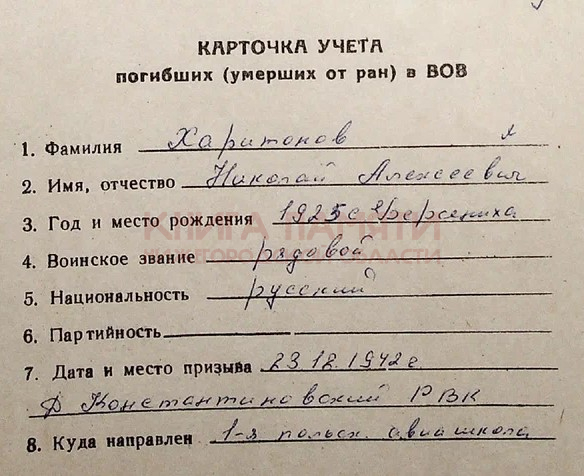 КАРТОЧКА УЧЕТА
погибших (умерших от ран) в ВОВ
1. Фамилия Харитонов
2. Имя, отчество Николай Алексеевич
3. Год и место рождения 1925 с
КНИГА ПАМЯТИ
НИЖЕГОРОДСКОЙ ОБЛАСТИ
4. Воинское звание рядовой
5. Национальность русский
6. Партийность
7. Дата и место призыва 23.12.1942 г.
Д Константиновский РВК
8. Куда направлен 1-я польск. авиашкола